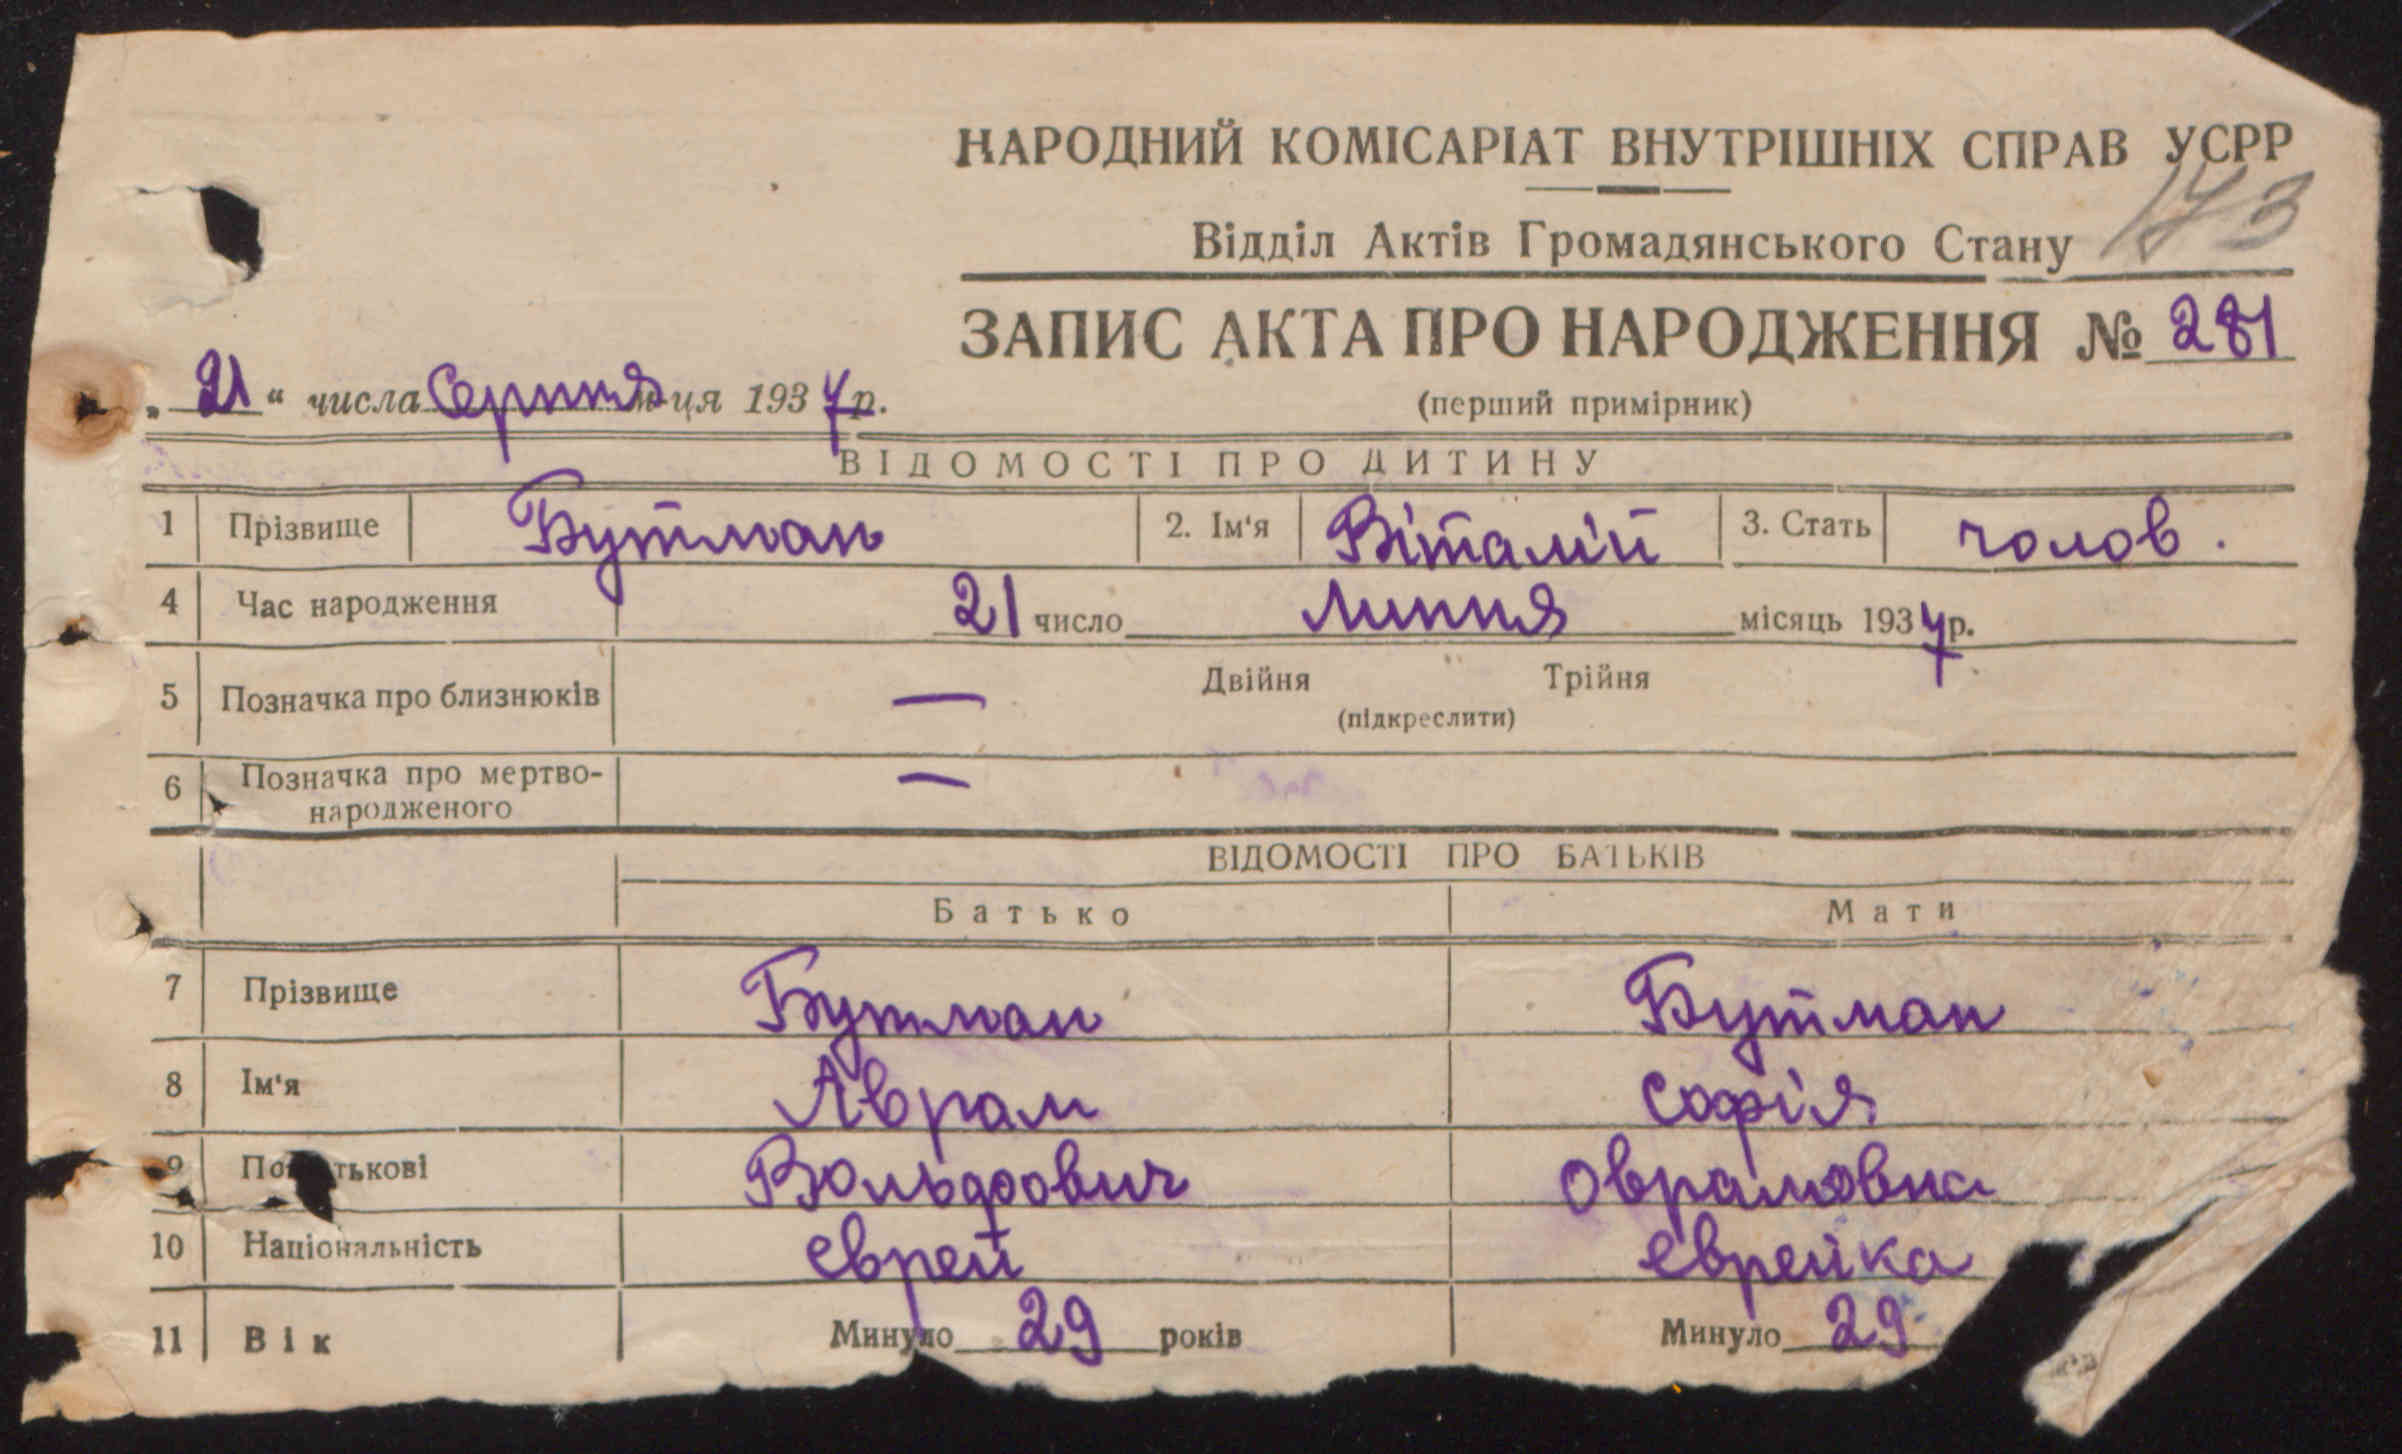 НАРОДНИЙ КОМІСАРІАТ ВНУТРІШНІХ СПРАВ УСРР
173
Відділ Актів Громадянського Стану
ЗАПИС АКТА ПРО НАРОДЖЕННЯ № 281
„ 21 “ числа Серпня м-ця 1937 р.
(перший примірник)
ВІДОМОСТІ ПРО ДИТИНУ
1 Прізвище Бутман 2. Ім'я Віталій 3. Стать чолов.
4 Час народження 21 число Липня місяць 1937 р.
5 Позначка про близнюків — Двійня Трійня
(підкреслити)
6 Позначка про мертво-
народженого —
ВІДОМОСТІ ПРО БАТЬКІВ
Батько Мати
7 Прізвище Бутман Бутман
8 Ім'я Аврам Софія
9 По тькові Вольфович Оврамовна
10 Національність Єврей Єврейка
11 Вік Минуло 29 років Минуло 29